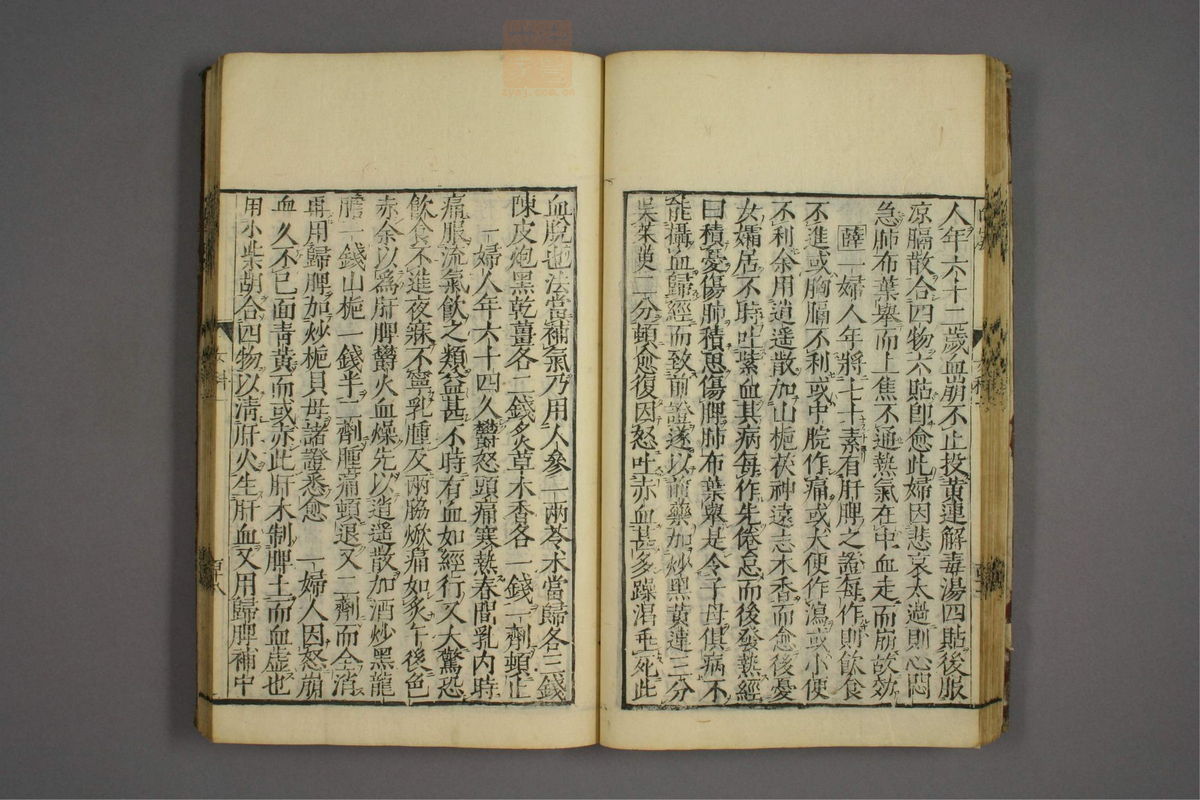 人年六十二歲血崩不止投黃連解毒湯四貼後服
凉膈散合四物六貼卽愈此婦因悲哀太過則心悶
急肺布葉舉而上焦不通熱氣在中血走而崩故効
薛一婦人年將七十素有肝脾之證每作則飲食
不進或胸膈不利或中脘作痛或大便作瀉或小便
不利余用逍遥散加山梔茯神遠志木香而愈後憂
女孀居不時吐紫血其病每作先倦怠而後發熱經
曰積憂傷肺積思傷脾肺布葉舉是令子母俱病不
能攝血歸經而致前證遂以前藥加炒黑黃連三分
吳茱萸二分頓愈復因怒吐赤血甚多躁渴垂死此
血脫也法當補氣乃用人參一兩苓朮當歸各三錢
陳皮炮黑乾薑各二錢炙草木香各一錢一劑頓止
一婦人年六十四久鬱怒頭痛寒熱春間乳内時
痛服流氣飲之類益甚不時有血如經行又大驚恐
飲食不進夜寐不寧乳腫及兩脇焮痛如炙午後色
赤余以爲肝脾鬱火血燥先以逍遥散加酒炒黑龍
膽一錢山梔一錢半二劑腫痛頓退又二劑而全消
再用歸脾加炒梔貝母諸證悉愈 一婦人因怒崩
血久不已面青黃而或赤此肝木制脾土而血虛也
用小柴胡合四物以清肝火生肝血又用歸脾補中